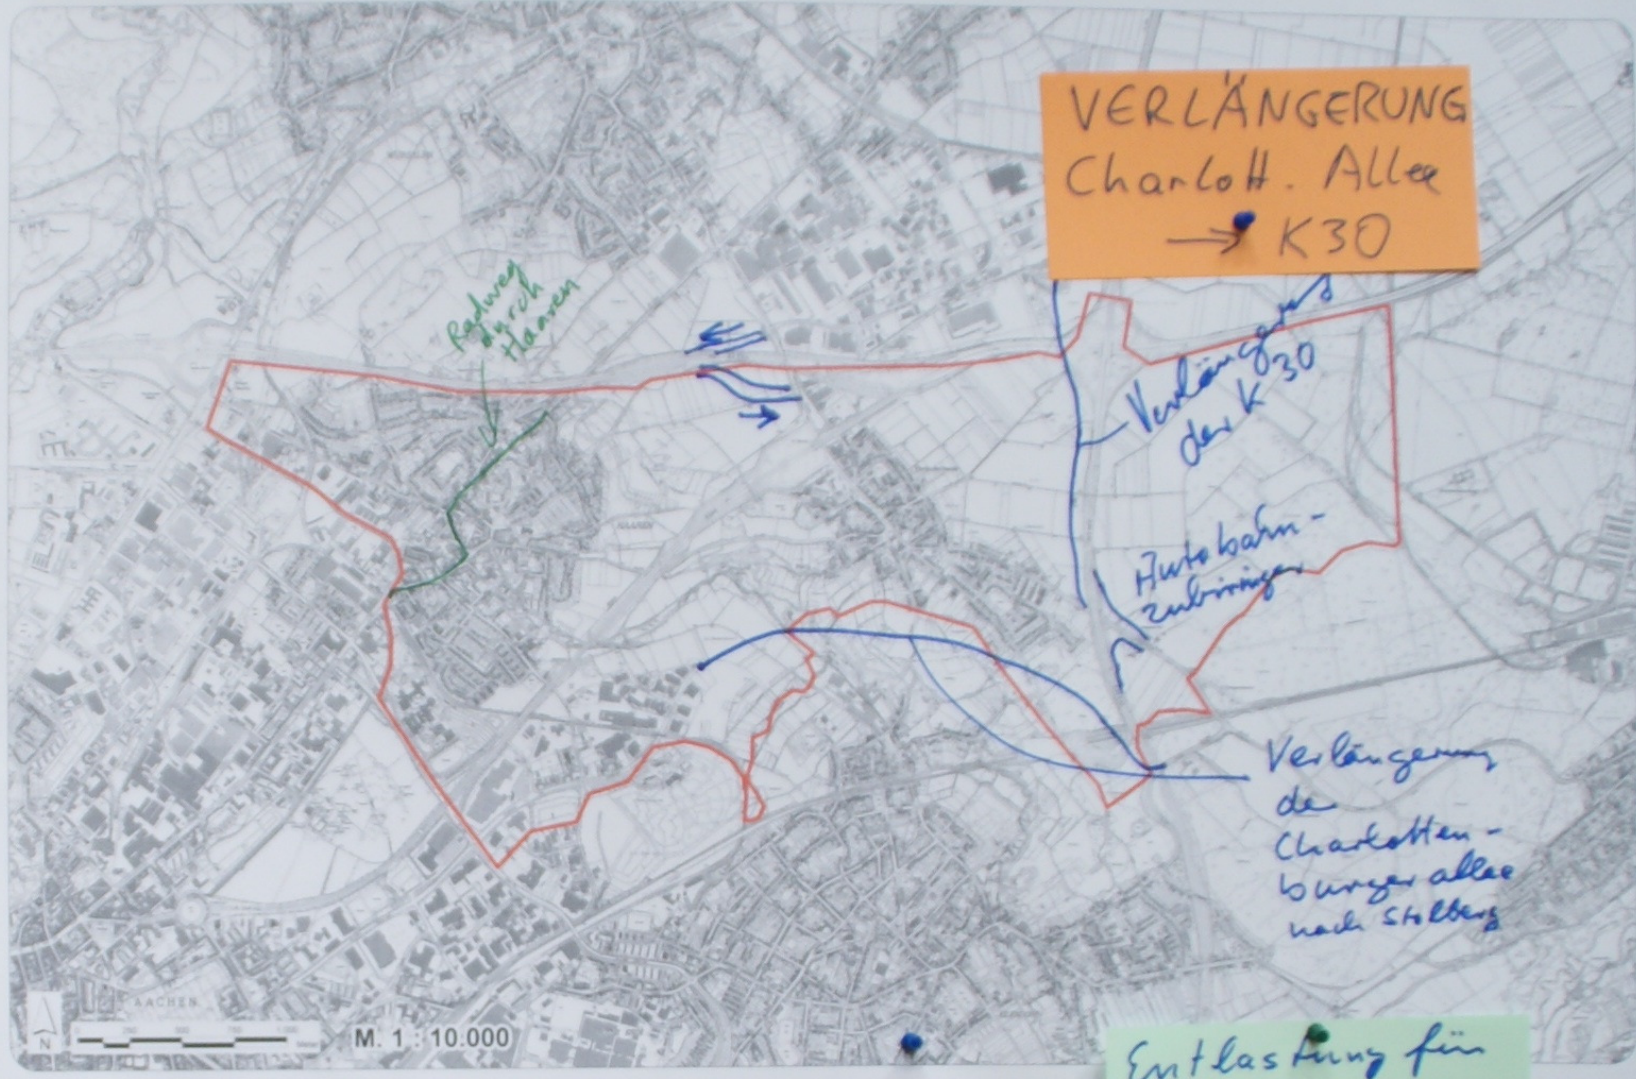 VERLÄNGERUNG
Charlott. Allee
→ K30
Radweg
durch
Haaren
Verlängerung
der K 30
Autobahn-
zubringer
Verlängerung
der
Charlotten-
burger allee
nach Stolberg
HAAREN
AACHEN
N
M. 1 : 10.000
Entlastung für